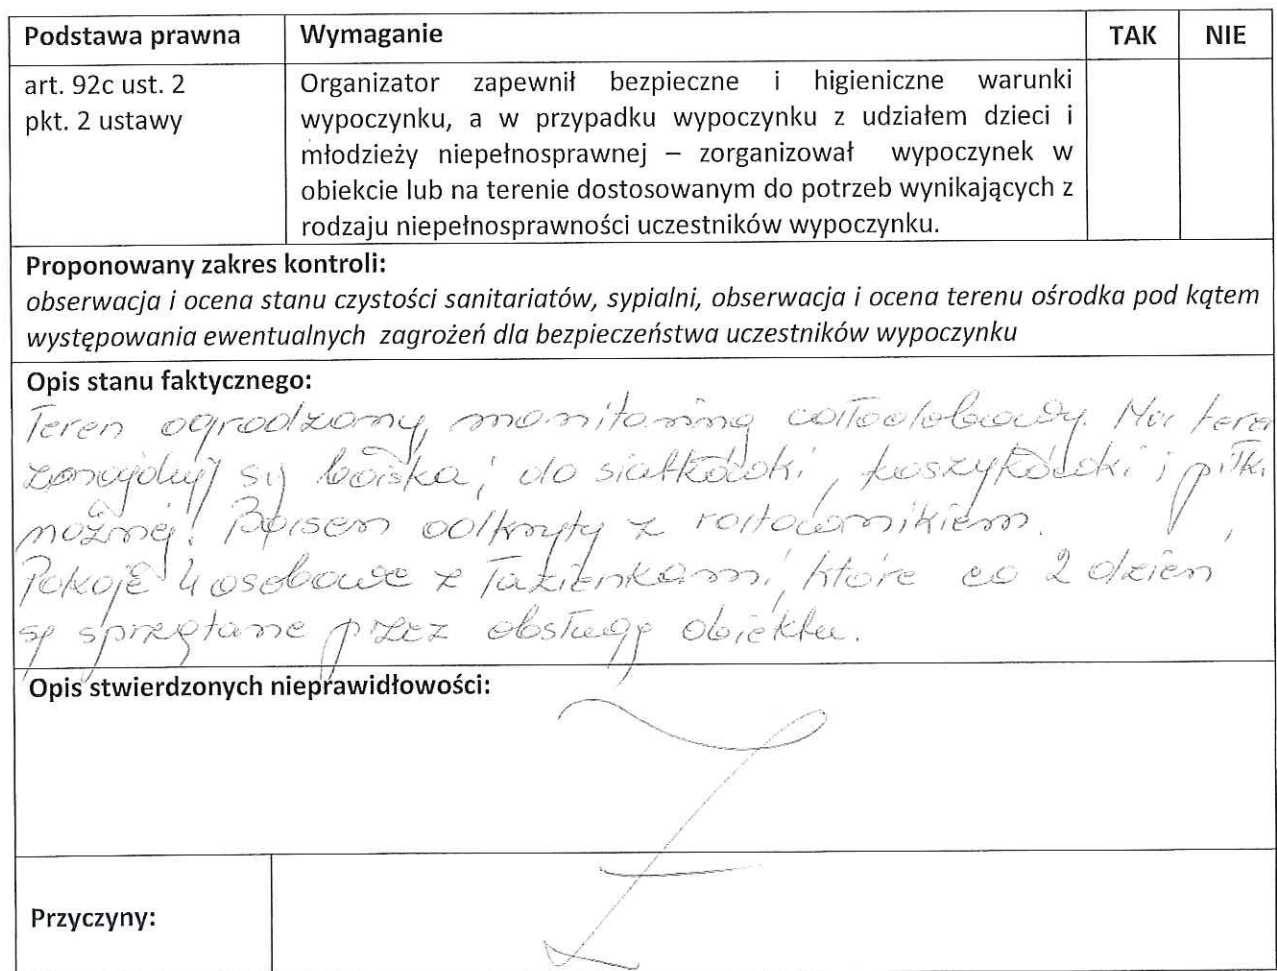 Podstawa prawna Wymaganie TAK NIE
art. 92c ust. 2
pkt. 2 ustawy
Organizator zapewnił bezpieczne i higieniczne warunki
wypoczynku, a w przypadku wypoczynku z udziałem dzieci i
młodzieży niepełnosprawnej – zorganizował wypoczynek w
obiekcie lub na terenie dostosowanym do potrzeb wynikających z
rodzaju niepełnosprawności uczestników wypoczynku.
Proponowany zakres kontroli:
obserwacja i ocena stanu czystości sanitariatów, sypialni, obserwacja i ocena terenu ośrodka pod kątem
występowania ewentualnych zagrożeń dla bezpieczeństwa uczestników wypoczynku
Opis stanu faktycznego:
Teren ogrodzony, monitoring całodobowy. Na teren
znajdują się boiska; do siatkówki, koszykówki i piłki
nożnej. Basen odkryty z ratownikiem.
Pokoje 4 osobowe z łazienkami, które co 2 dzień
są sprzątane przez obsługę obiektu.
Opis stwierdzonych nieprawidłowości:
Przyczyny: